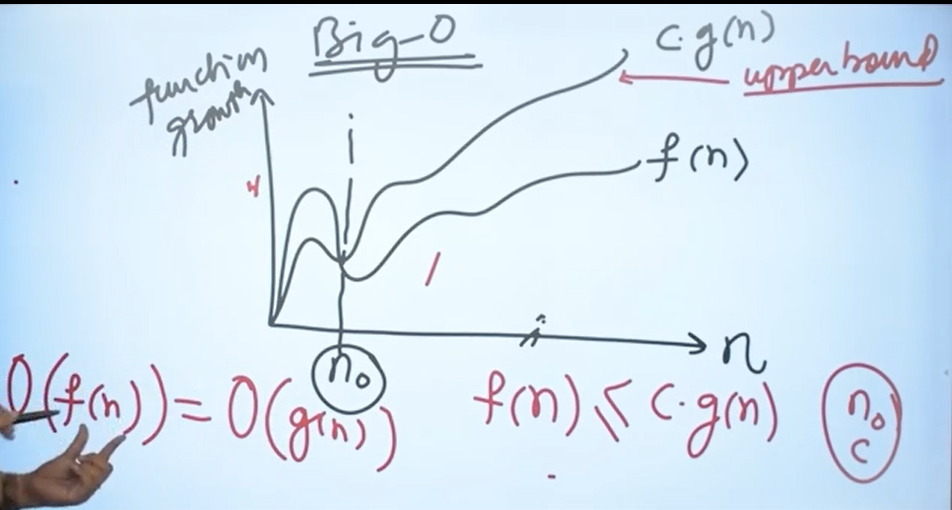 Big-O
c.g(n)
function
growth
upper bound
f(n)
i
n
n₀
O(f(n)) = O(g(n))
f(n) ≤ c.g(n)
n₀
c